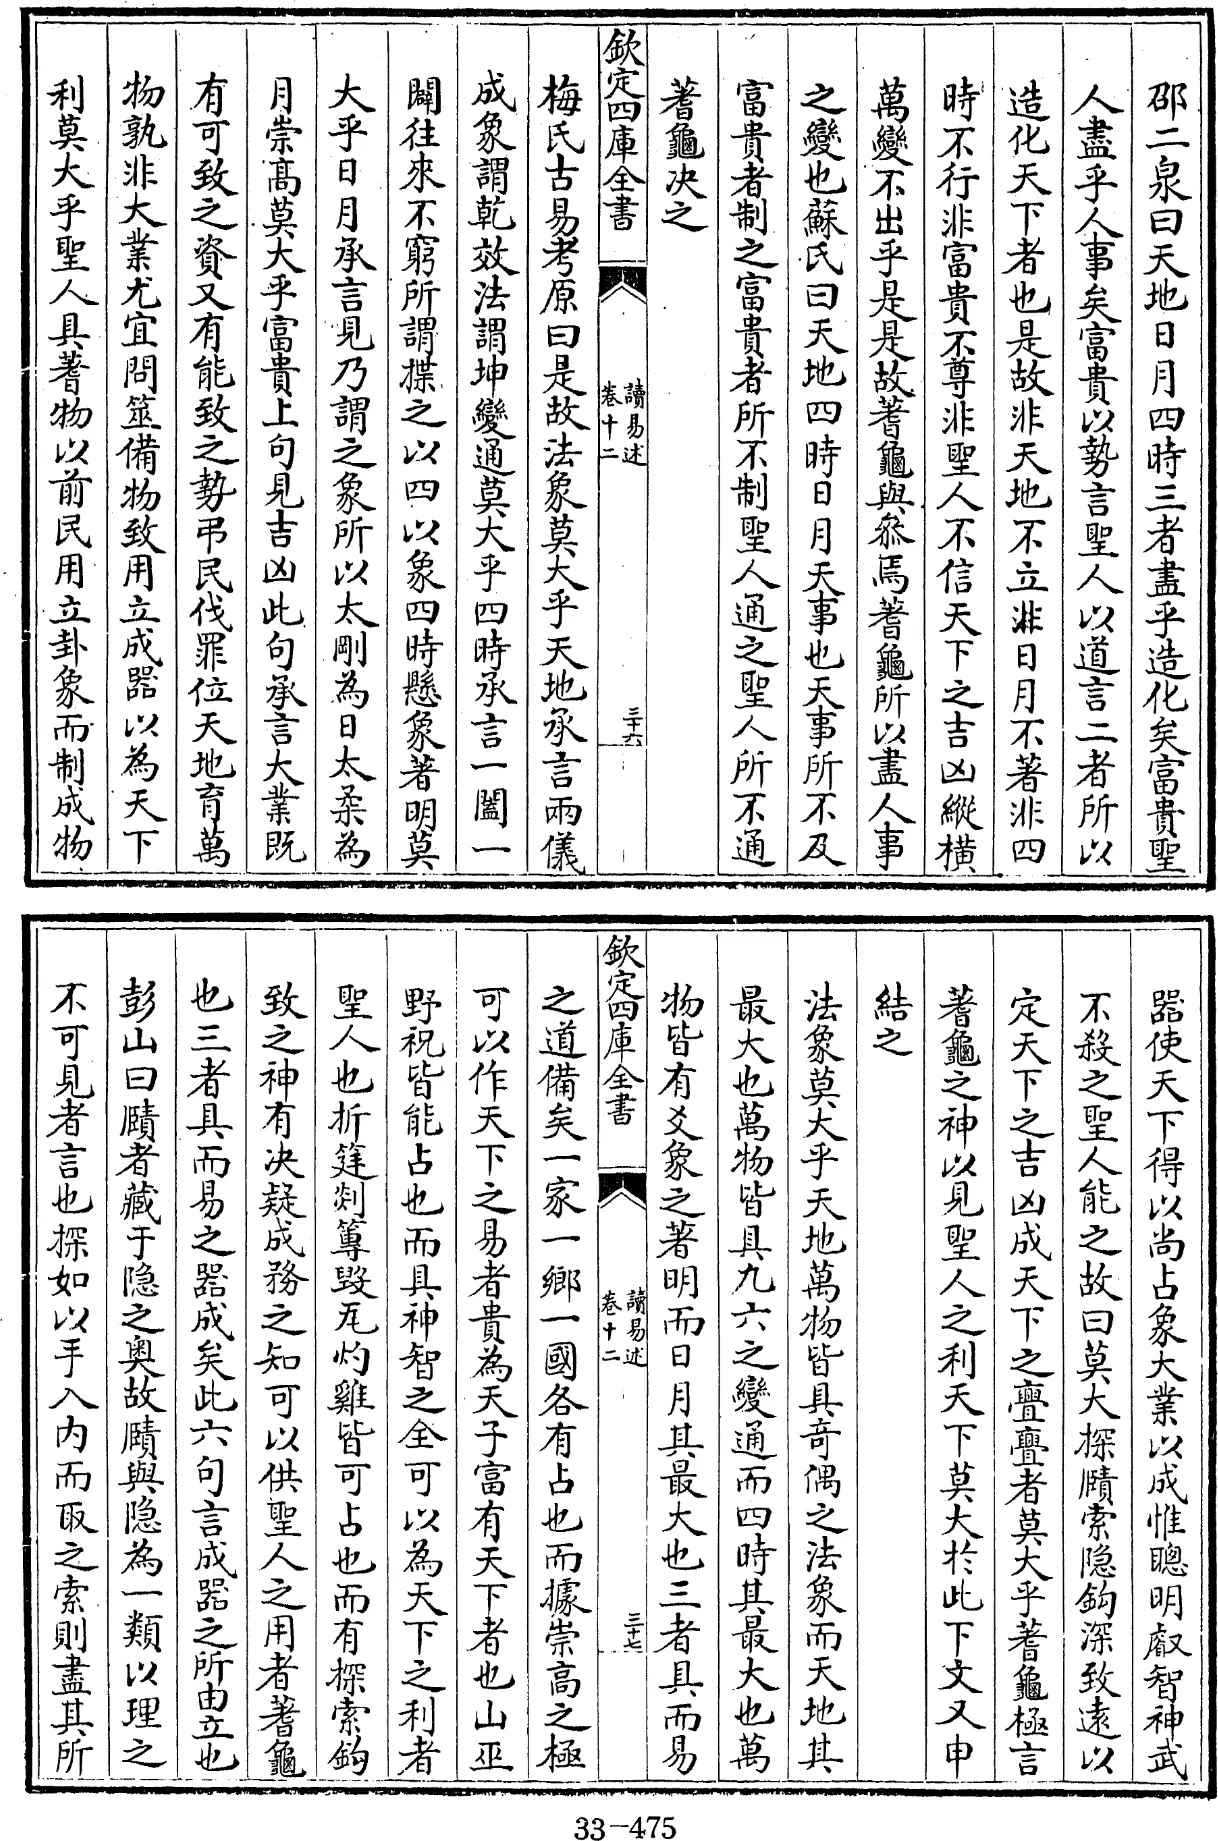 邵二泉曰天地日月四時三者盡乎造化矣富貴聖
人盡乎人事矣富貴以勢言聖人以道言二者所以
造化天下者也是故非天地不立非日月不著非四
時不行非富貴不尊非聖人不信天下之吉凶縱橫
萬變不出乎是是故蓍龜與叅焉蓍龜所以盡人事
之變也蘇氏曰天地四時日月天事也天事所不及
富貴者制之富貴者所不制聖人通之聖人所不通
蓍龜决之
欽定四庫全書
讀易述
卷十二
三十六
梅氏古易考原曰是故法象莫大乎天地承言兩儀
成象謂乾效法謂坤變通莫大乎四時承言一闔一
闢往來不窮所謂揲之以四以象四時懸象著明莫
大乎日月承言見乃謂之象所以太剛為日太柔為
月崇髙莫大乎富貴上句見吉凶此句承言大業既
有可致之資又有能致之勢弔民伐罪位天地育萬
物孰非大業尤宜問筮備物致用立成器以為天下
利莫大乎聖人具蓍物以前民用立卦象而制成物
器使天下得以尚占象大業以成惟聰明叡智神武
不殺之聖人能之故曰莫大探賾索隐鈎深致遠以
定天下之吉凶成天下之亹亹者莫大乎蓍龜極言
蓍龜之神以見聖人之利天下莫大於此下文又申
結之
法象莫大乎天地萬物皆具奇偶之法象而天地其
最大也萬物皆具九六之變通而四時其最大也萬
物皆有爻象之著明而日月其最大也三者具而易
欽定四庫全書
讀易述
卷十二
三十七
之道備矣一家一鄉一國各有占也而據崇高之極
可以作天下之易者貴為天子富有天下者也山巫
野祝皆能占也而具神智之全可以為天下之利者
聖人也折筳剡篿毁瓦灼雞皆可占也而有探索鈎
致之神有决疑成務之知可以供聖人之用者蓍龜
也三者具而易之器成矣此六句言成器之所由立也
彭山曰賾者藏于隐之奥故賾與隐為一類以理之
不可見者言也探如以手入内而取之索則盡其所
33-475